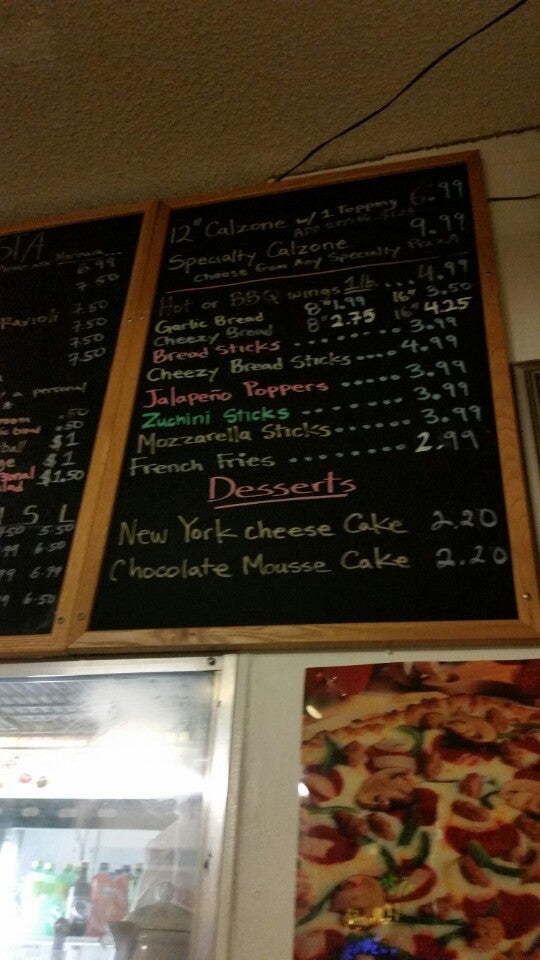 Marinara
6.99
7.50
Ravioli 7.50
7.50
7.50
7.50
a personal
.50
.50
$1
$1
$1.50
S L
5.50
6.50
6.99
6.50
12" Calzone w/ 1 Topping 6.99
Specialty Calzone 9.99
Choose from Any Specialty Pizza
Hot or BBQ wings 1lb... 4.99
Garlic Bread 8" 1.99 16" 3.50
Cheezy Bread 8" 2.75 16" 4.25
Bread Sticks ........ 3.99
Cheezy Bread Sticks.... 4.99
Jalapeño Poppers ..... 3.99
Zuchini Sticks ....... 3.99
Mozzarella Sticks..... 3.99
French Fries ........ 2.99
Desserts
New York cheese Cake 2.20
Chocolate Mousse Cake 2.20